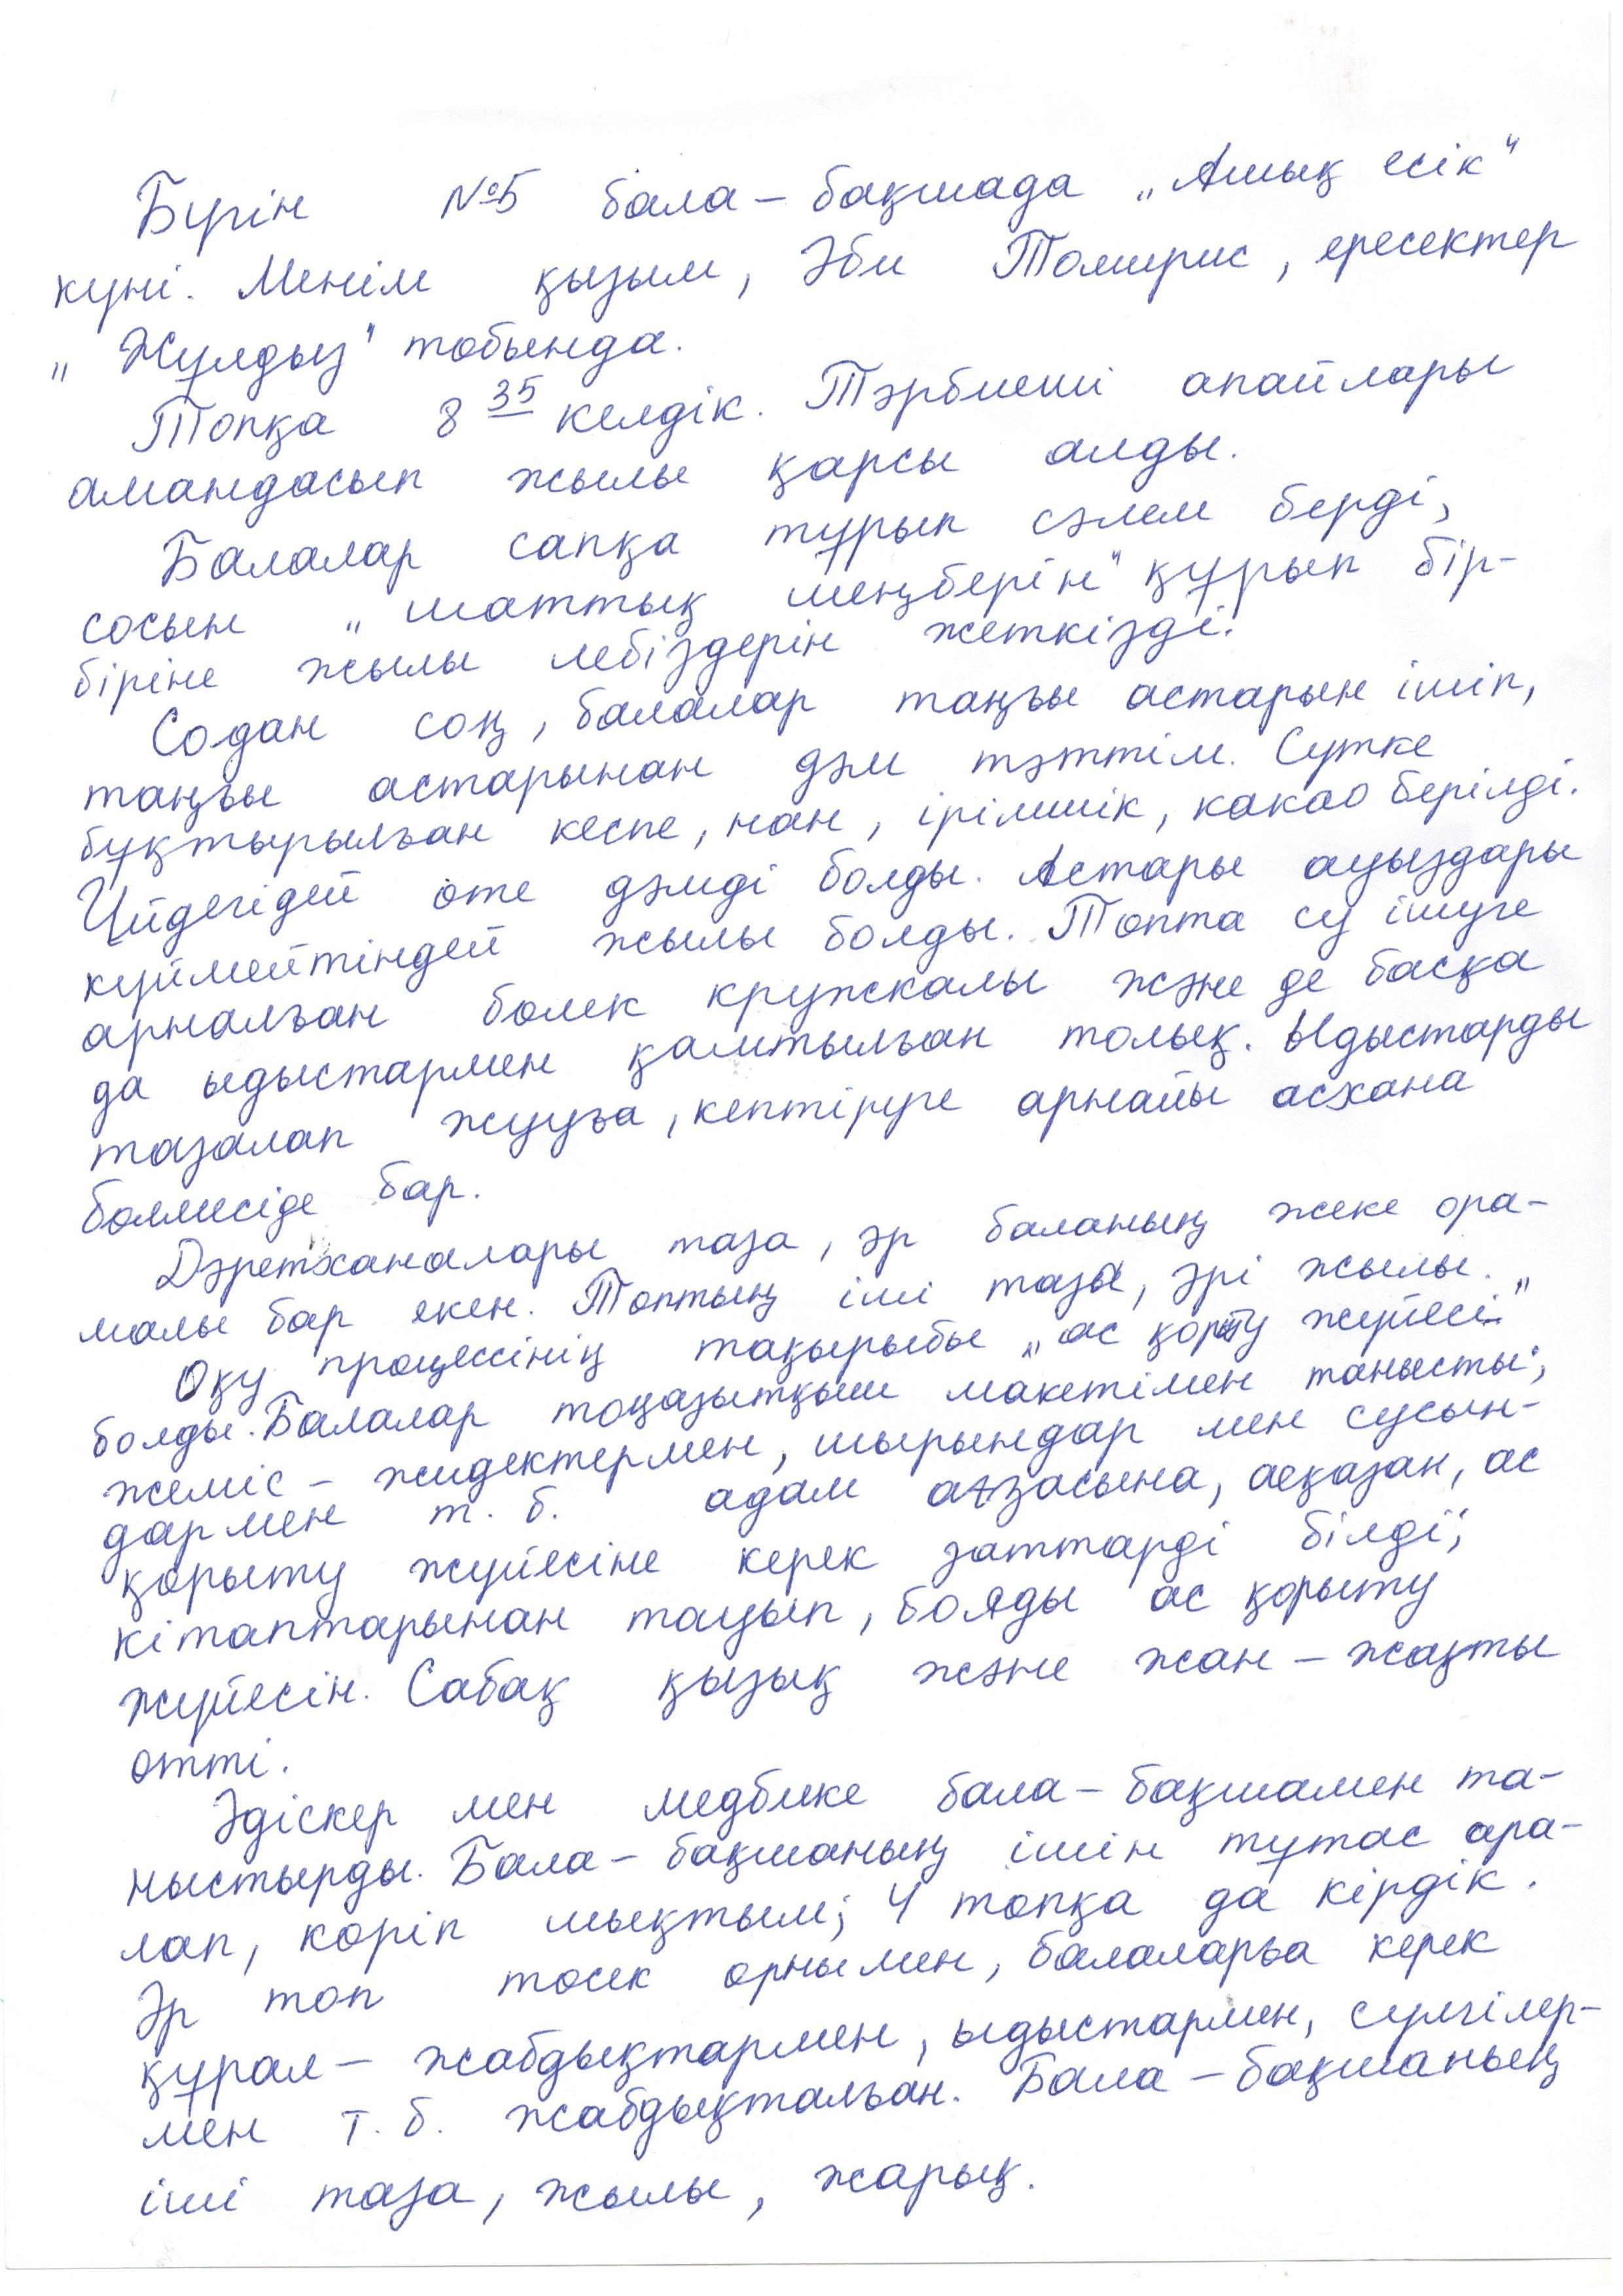 Бүгін №5 бала – бақшада „Ашық есік"
күні. Менім қызым, Әби Томирис, ересектер
„Жұлдыз" тобында.
Топқа 8 35 келдік. Тәрбиеші апайлары
амандасып жылы қарсы алды.
Балалар сапқа тұрып сәлем берді,
сосын „шаттық шеңберін" құрып бір-
біріне жылы лебіздерін жеткізді.
Содан соң, балалар таңғы астарын ішіп,
таңғы астарынан дәм тәттім. Сүтке
бұқтырылған кеспе, нан, ірімшік, какао берілді.
Үйдегідей өте дәмді болды. Астары ауыздары
күймейтіндей жылы болды. Топта су ішуге
арналған бөлек кружкалы және де басқа
да ыдыстармен қамтылған толық. Ыдыстарды
тазалап жууға, кептіруге арнайы асхана
бөлмесіде бар.
Дәретханалары таза, әр баланың жеке ора-
малы бар екен. Топтың іші таза, әрі жылы.
Оқу процессінің тақырыбы „ас қорту жүйесі"
болды. Балалар тоңазытқыш макетімен танысты;
жеміс – жидектермен, шырындар мен сусын-
дармен т. б. адам ағзасына, асқазан, ас
қорыту жүйесіне керек заттарді білді;
кітаптарынан тауып, бояды ас қорыту
жүйесін. Сабақ қызық және жан – жақты
өтті.
Әдіскер мен медбике бала – бақшамен та-
ныстырды. Бала – бақшаның ішін тұтас ара-
лап, көріп шықтым; 4 топқа да кірдік.
Әр топ төсек орнымен, балаларға керек
құрал – жабдықтармен, ыдыстармен, сүлгілер-
мен т. б. жабдықталған. Бала – бақшаның
іші таза, жылы, жарық.